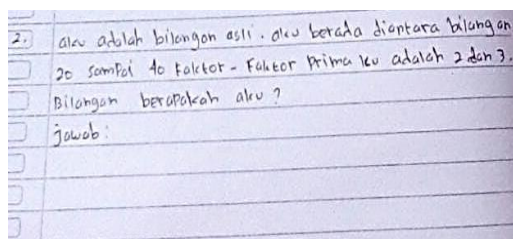 2. aku adalah bilangan asli. aku berada diantara bilangan
20 sampai 40 faktor-faktor prima ku adalah 2 dan 3.
Bilangan berapakah aku?
jawab: